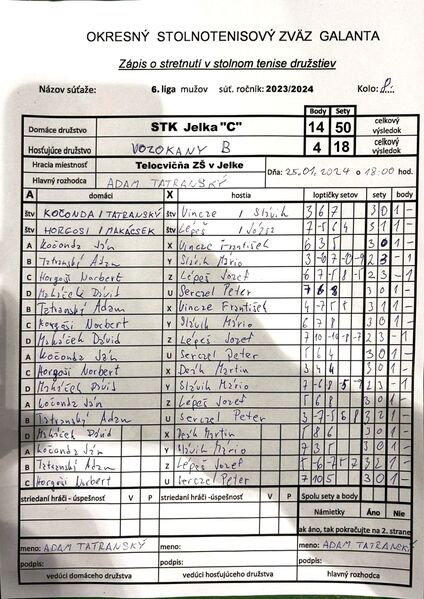 OKRESNÝ STOLNOTENISOVÝ ZVÄZ GALANTA
Zápis o stretnutí v stolnom tenise družstiev
Názov súťaže: 6. liga mužov súť. ročník: 2023/2024 Kolo: 8.
Body Sety
Domáce družstvo STK Jelka "C" 14 50 celkový výsledok
Hosťujúce družstvo VOZOKANY B 4 18 celkový výsledok
Hracia miestnosť Telocvičňa ZŠ v Jelke Dňa: 25.01.2024 o 18:00 hod.
Hlavný rozhodca ADAM TATRANSKÝ
A domáci X hostia loptičky setov sety body
štv KOČONDA / TATRANSKÝ štv Vincze / Slávik 3 6 7 3 0 1 -
štv HORGOSI / MAKÁCSEK štv Lépeš 3 1 1 -
A Kočonda Ján X Vincze František 6 3 5 3 0 1 -
B Tatranský Adam Y Slávik Mário 2 3 - 1
C Horgosi Norbert Z Lépeš Jozef 2 3 - 1
D Dávid U Serczel Peter 7 6 8 3 0 1 -
B Tatranský Adam X Vincze František 3 1 1 -
C Horgosi Norbert Y Slávik Mário 6 7 8 3 0 1 -
D Dávid Z Lépeš Jozef 2 3 - 1
A Kočonda Ján U Serczel Peter 5 6 4 3 0 1 -
C Horgosi Norbert X Deák Martin 3 4 4 3 0 1 -
D Dávid Y Slávik Mário 2 3 - 1
A Kočonda Ján Z Lépeš Jozef 5 6 8 3 0 1 -
B Tatranský Adam U Serczel Peter 3 2 1 -
D Dávid X Deák Martin 8 6 3 0 1 -
A Kočonda Ján Y Slávik Mário 3 0 1 -
B Tatranský Adam Z Lépeš Jozef 3 2 1 -
C Horgosi Norbert U Serczel Peter 7 10 5 3 0 1 -
striedaní hráči - úspešnosť V P striedaní hráči - úspešnosť V P Spolu sety a body
Námietky Áno Nie
ak áno, tak pokračujte na 2. strane
meno: ADAM TATRANSKÝ meno: meno: ADAM TATRANSKÝ
podpis: podpis: podpis:
vedúci domáceho družstva vedúci hosťujúceho družstva hlavný rozhodca